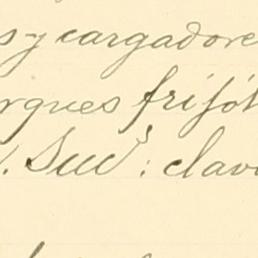 s y cargadore
rques frijól
. Sud: clavo